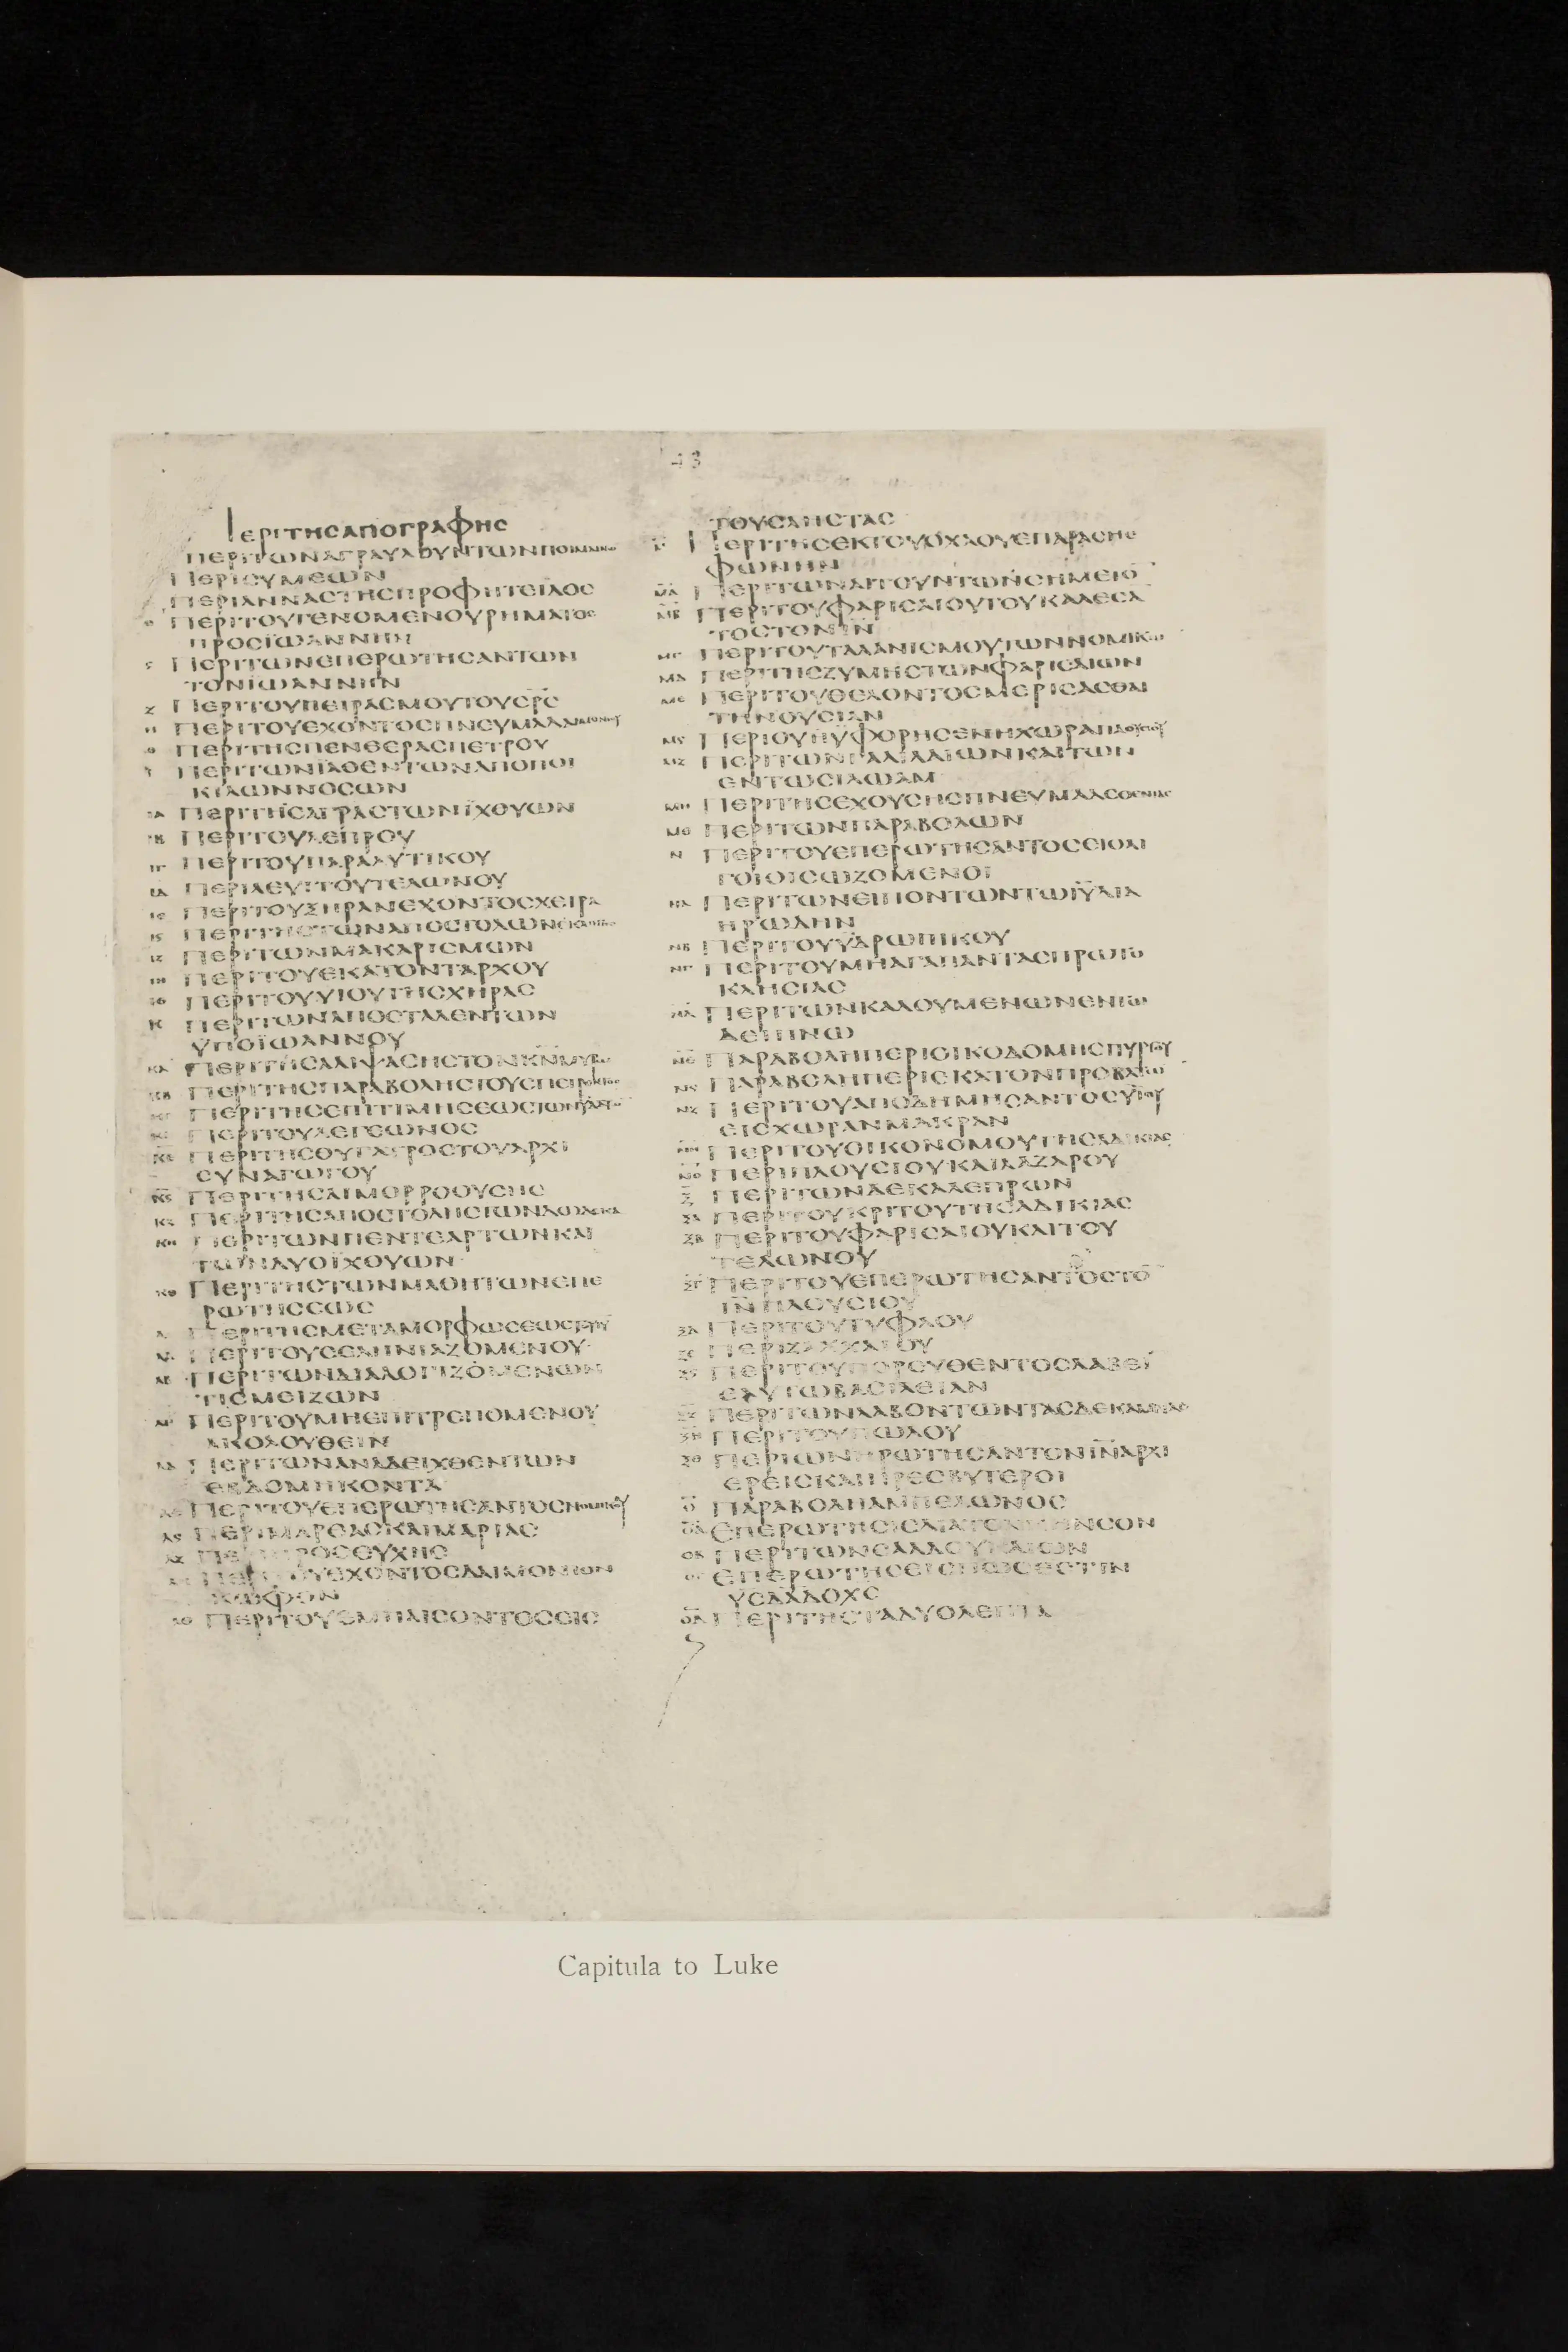 43
ΠΕΡΙΤΗСΑΠΟΓΡΑΦΗС
ΠΕΡΙΤΩΝΑΓΡΑΥΛΟΥΝΤΩΝΠΟΙΜΕΝΩ
ΠΕΡΙСΥΜΕΩΝ
ΠΕΡΙΑΝΝΑСΤΗСΠΡΟΦΗΤΕΙΔΟС
ΠΕΡΙΤΟΥΓΕΝΟΜΕΝΟΥΡΗΜΑΤΟС
ΠΡΟСΪΩΑΝΝΗΝ
Ϛ ΠΕΡΙΤΩΝΕΠΕΡΩΤΗСΑΝΤΩΝ
ΤΟΝΪΩΑΝΝΗΝ
Ζ ΠΕΡΙΤΟΥΠΕΙΡΑСΜΟΥΤΟΥСΡС
Η ΠΕΡΙΤΟΥΕΧΟΝΤΟСΠΝΕΥΜΑΔΑΙΜΟΝΙΟΥ
Θ ΠΕΡΙΤΗСΠΕΝΘΕΡΑСΠΕΤΡΟΥ
Ι ΠΕΡΙΤΩΝΪΑΘΕΝΤΩΝΑΠΟΠΟΙ
ΚΙΛΩΝΝΟСΩΝ
ΙΑ ΠΕΡΙΤΗСΑΓΡΑСΤΩΝΪΧΘΥΩΝ
ΙΒ ΠΕΡΙΤΟΥΛΕΠΡΟΥ
ΙΓ ΠΕΡΙΤΟΥΠΑΡΑΛΥΤΙΚΟΥ
ΙΔ ΠΕΡΙΛΕΥΙΤΟΥΤΕΛΩΝΟΥ
ΙΕ ΠΕΡΙΤΟΥΞΗΡΑΝΕΧΟΝΤΟСΧΕΙΡΑ
ΙϚ ΠΕΡΙΤΗСΤΩΝΑΠΟСΤΟΛΩΝΕΚΛΟΓΗС
ΙΖ ΠΕΡΙΤΩΝΜΑΚΑΡΙСΜΩΝ
ΙΗ ΠΕΡΙΤΟΥΕΚΑΤΟΝΤΑΡΧΟΥ
ΙΘ ΠΕΡΙΤΟΥΥΙΟΥΤΗСΧΗΡΑС
Κ ΠΕΡΙΤΩΝΑΠΟСΤΑΛΕΝΤΩΝ
ΥΠΟΪΩΑΝΝΟΥ
ΚΑ ΠΕΡΙΤΗСΑΛΙΨΑСΗСΤΟΝΚΝΜΥΡΩ
ΚΒ ΠΕΡΙΤΗСΠΑΡΑΒΟΛΗСΤΟΥСΠΕΙΡΟΝΤΟС
ΚΓ ΠΕΡΙΤΗСΕΠΙΤΙΜΗСΕΩСΤΩΝΥΔΑΤΩ
ΚΔ ΠΕΡΙΤΟΥΛΕΓΕΩΝΟС
ΚΕ ΠΕΡΙΤΗСΘΥΓΑΤΡΟСΤΟΥΑΡΧΙ
СΥΝΑΓΩΓΟΥ
ΚϚ ΠΕΡΙΤΗСΑΙΜΟΡΡΟΟΥСΗС
ΚΖ ΠΕΡΙΤΗСΑΠΟСΤΟΛΗСΤΩΝΔΩΔΕΚΑ
ΚΗ ΠΕΡΙΤΩΝΠΕΝΤΕΑΡΤΩΝΚΑΙ
ΤΩΝΔΥΟΪΧΘΥΩΝ
ΚΘ ΠΕΡΙΤΗСΤΩΝΜΑΘΗΤΩΝΕΠΕ
ΡΩΤΗСΕΩС
Λ ΠΕΡΙΤΗСΜΕΤΑΜΟΡΦΩСΕΩСΤΟΥΙΥ
ΛΑ ΠΕΡΙΤΟΥСΕΛΗΝΙΑΖΟΜΕΝΟΥ
ΛΒ ΠΕΡΙΤΩΝΔΙΑΛΟΓΙΖΟΜΕΝΩΝ
ΤΙСΜΕΙΖΩΝ
ΛΓ ΠΕΡΙΤΟΥΜΗΕΠΙΤΡΕΠΟΜΕΝΟΥ
ΑΚΟΛΟΥΘΕΙΝ
ΛΔ ΠΕΡΙΤΩΝΑΝΑΔΕΙΧΘΕΝΤΩΝ
ΕΒΔΟΜΗΚΟΝΤΑ
ΛΕ ΠΕΡΙΤΟΥΕΠΕΡΩΤΗСΑΝΤΟСΝΟΜΙΚΟΥ
ΛϚ ΠΕΡΙΜΑΡΘΑСΚΑΙΜΑΡΙΑС
ΛΖ ΠΕΡΙΠΡΟСΕΥΧΗС
ΛΗ ΠΕΡΙΤΟΥΕΧΟΝΤΟСΔΑΙΜΟΝΙΟΝ
ΚΩΦΟΝ
ΛΘ ΠΕΡΙΤΟΥΕΜΠΑΙСΟΝΤΟССΙС
ΤΟΥСΛΗСΤΑС
Μ ΠΕΡΙΤΗСΕΚΤΟΥΟΧΛΟΥΕΠΑΡΑСΗС
ΦΩΝΗΝ
ΜΑ ΠΕΡΙΤΩΝΑΙΤΟΥΝΤΩΝСΗΜΕΙΟ
ΜΒ ΠΕΡΙΤΟΥΦΑΡΙСΑΙΟΥΤΟΥΚΑΛΕСΑ
ΤΟСΤΟΝΙΝ
ΜΓ ΠΕΡΙΤΟΥΤΑΛΑΝΙСΜΟΥΤΩΝΝΟΜΙΚΩ
ΜΔ ΠΕΡΙΤΗСΖΥΜΗСΤΩΝΦΑΡΙСΑΙΩΝ
ΜΕ ΠΕΡΙΤΟΥΘΕΛΟΝΤΟСΜΕΡΙСΑСΘΑΙ
ΤΗΝΟΥСΙΑΝ
ΜϚ ΠΕΡΙΟΥΗΥΦΟΡΗСΕΝΗΧΩΡΑΠΛΟΥСΙΟΥ
ΜΖ ΠΕΡΙΤΩΝΓΑΛΙΛΑΙΩΝΚΑΙΤΩΝ
ΕΝΤΩСΙΛΩΑΜ
ΜΗ ΠΕΡΙΤΗСΕΧΟΥСΗСΠΝΕΥΜΑΑСΘΕΝΙΑС
ΜΘ ΠΕΡΙΤΩΝΠΑΡΑΒΟΛΩΝ
Ν ΠΕΡΙΤΟΥΕΠΕΡΩΤΗСΑΝΤΟСΕΙΟΛΙ
ΓΟΙΟΙСΩΖΟΜΕΝΟΙ
ΝΑ ΠΕΡΙΤΩΝΕΙΠΟΝΤΩΝΤΩΙΥΔΙΑ
ΗΡΩΔΗΝ
ΝΒ ΠΕΡΙΤΟΥΥΔΡΩΠΙΚΟΥ
ΝΓ ΠΕΡΙΤΟΥΜΗΑΓΑΠΑΝΤΑСΠΡΩΤΟ
ΚΛΗСΙΑС
ΝΔ ΠΕΡΙΤΩΝΚΑΛΟΥΜΕΝΩΝΕΝΤΩ
ΔΕΙΠΝΩ
ΝΕ ΠΑΡΑΒΟΛΗΠΕΡΙΟΙΚΟΔΟΜΗСΠΥΡΓΟΥ
ΝϚ ΠΑΡΑΒΟΛΗΠΕΡΙΕΚΑΤΟΝΠΡΟΒΑΤΩ
ΝΖ ΠΕΡΙΤΟΥΑΠΟΔΗΜΗСΑΝΤΟСΥΙΟΥ
ΕΙСΧΩΡΑΝΜΑΚΡΑΝ
ΝΗ ΠΕΡΙΤΟΥΟΙΚΟΝΟΜΟΥΤΗСΑΔΙΚΙΑС
ΝΘ ΠΕΡΙΠΛΟΥСΙΟΥΚΑΙΛΑΖΑΡΟΥ
Ξ ΠΕΡΙΤΩΝΔΕΚΑΛΕΠΡΩΝ
ΞΑ ΠΕΡΙΤΟΥΚΡΙΤΟΥΤΗСΑΔΙΚΙΑС
ΞΒ ΠΕΡΙΤΟΥΦΑΡΙСΑΙΟΥΚΑΙΤΟΥ
ΤΕΛΩΝΟΥ
ΞΓ ΠΕΡΙΤΟΥΕΠΕΡΩΤΗСΑΝΤΟСΤΟ
ΙΝΠΛΟΥСΙΟΥ
ΞΔ ΠΕΡΙΤΟΥΤΥΦΛΟΥ
ΞΕ ΠΕΡΙΖΑΚΧΑΙΟΥ
ΞϚ ΠΕΡΙΤΟΥΠΟΡΕΥΘΕΝΤΟСΛΑΒΕΙ
ΕΑΥΤΩΒΑСΙΛΕΙΑΝ
ΞΖ ΠΕΡΙΤΩΝΛΑΒΟΝΤΩΝΤΑСΔΕΚΑΜΝΑС
ΞΗ ΠΕΡΙΤΟΥΠΩΛΟΥ
ΞΘ ΠΕΡΙΤΩΝΗΡΩΤΗСΑΝΤΟΝΙΝΑΡΧΙ
ΕΡΕΙСΚΑΙΠΡΕСΒΥΤΕΡΟΙ
Ο ΠΑΡΑΒΟΛΗΑΜΠΕΛΩΝΟС
ΟΑ ΕΠΕΡΩΤΗСΙСΔΙΑΤΟΝΚΗΝСΟΝ
ΟΒ ΠΕΡΙΤΩΝСΑΔΔΟΥΚΑΙΩΝ
ΟΓ ΕΠΕΡΩΤΗСΕΙСΠΩСΕСΤΙΝ
ΥСΔΑΔΟΧС
ΟΔ ΠΕΡΙΤΗСΤΑΔΥΟΛΕΠΤΑ
Capitula to Luke